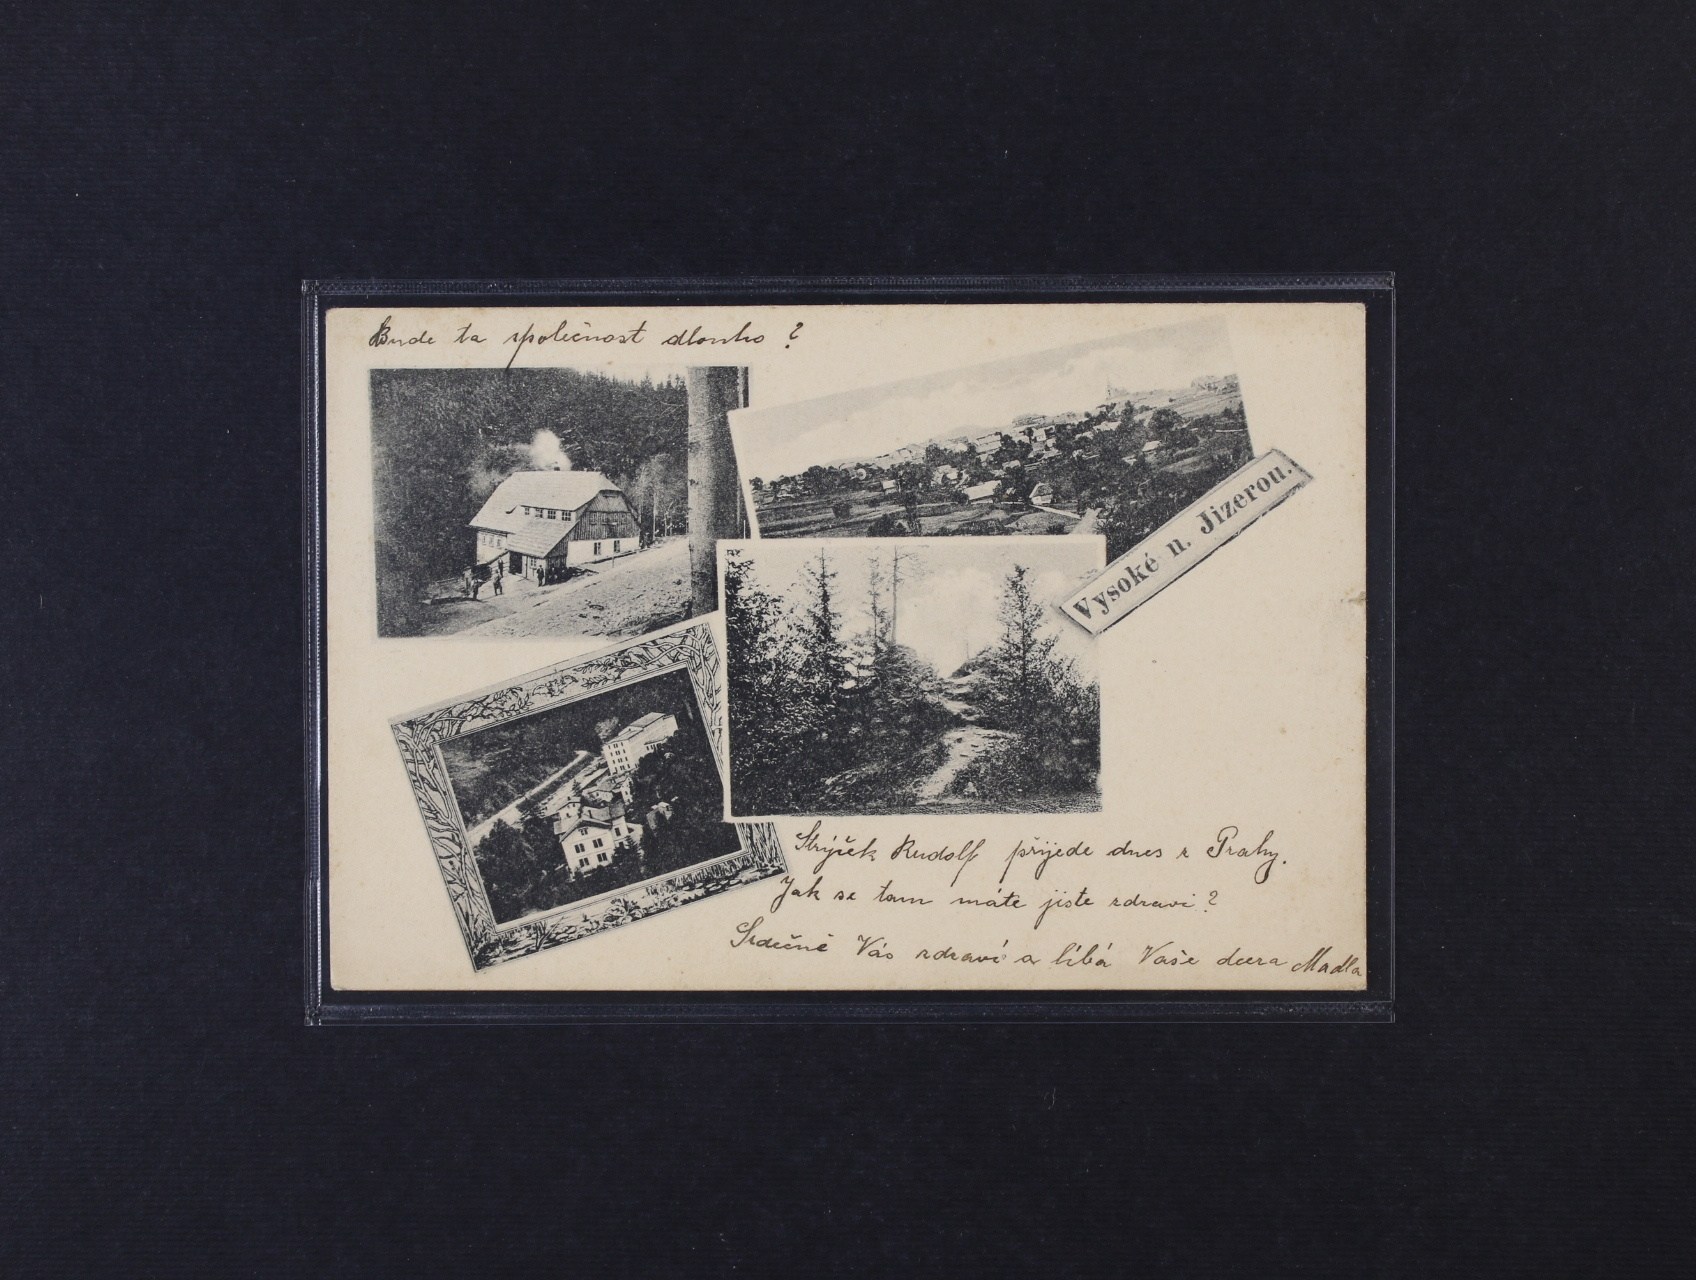 Bude ta společnost dlouho?
Vysoké n. Jizerou.
Strýček Rudolf přijede dnes z Prahy.
Jak se tam máte jiste zdravi?
Srdečně Vás zdraví a líbá Vaše dcera Madla